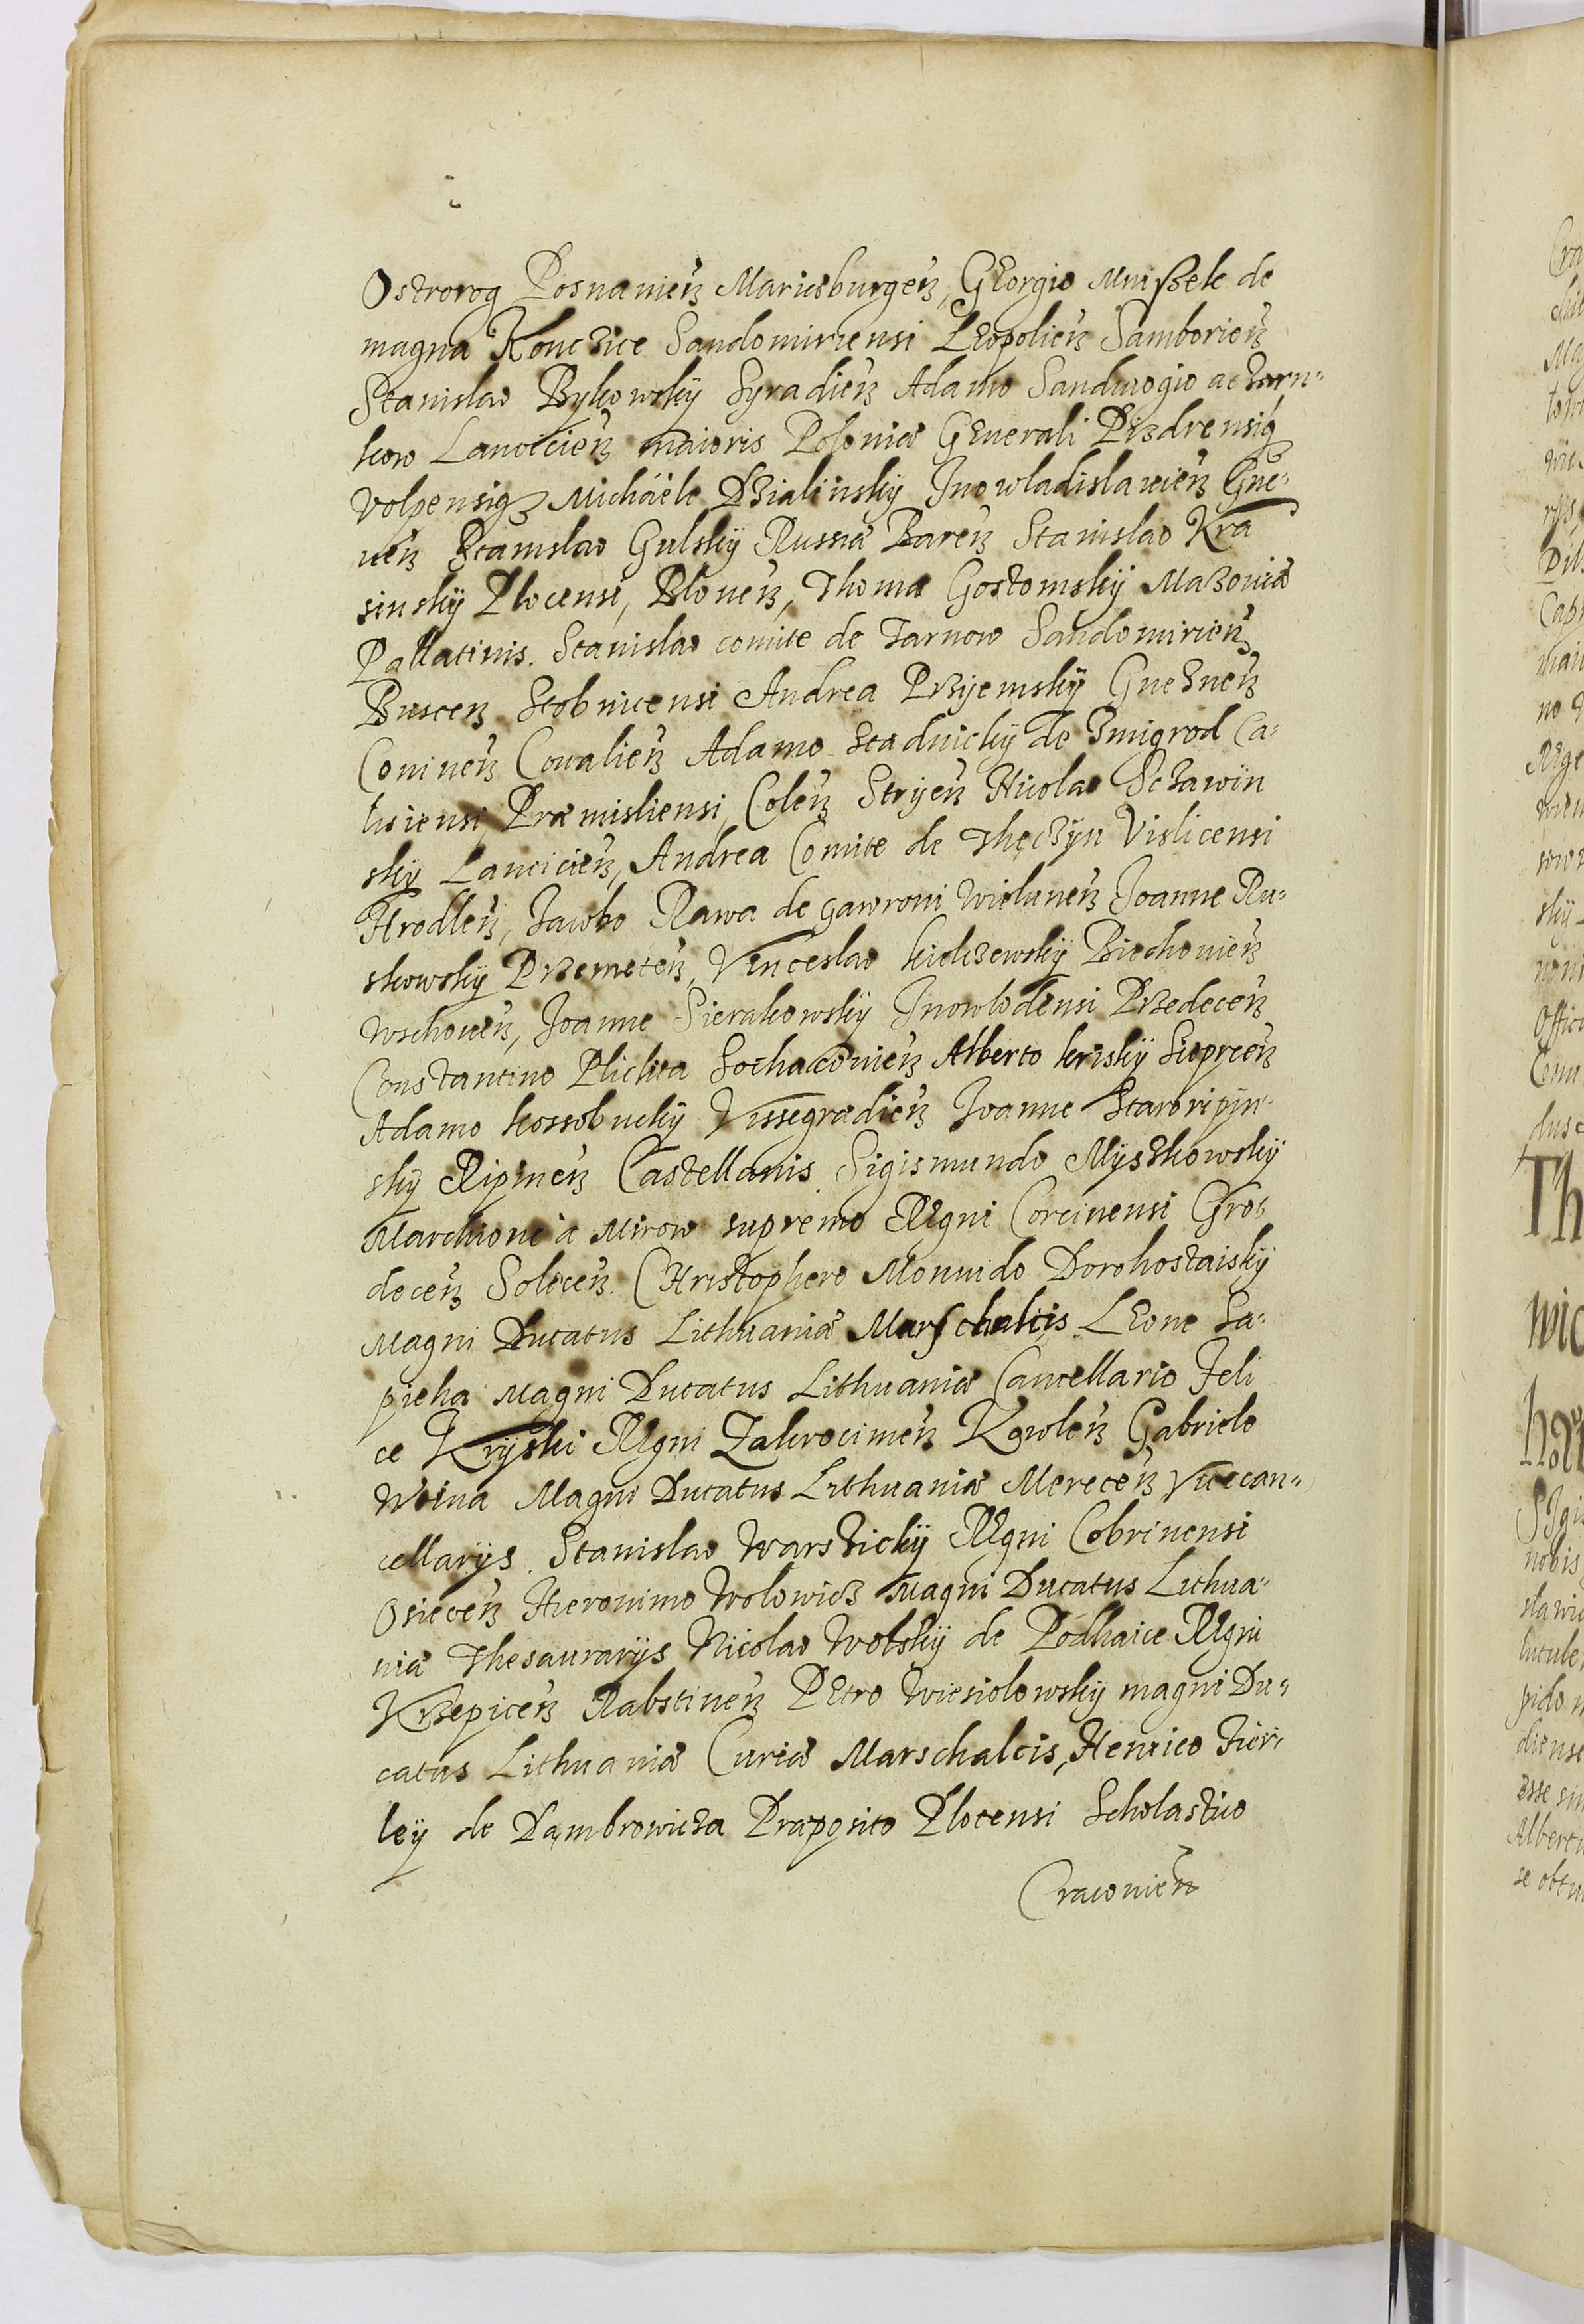 Ostrorog Posnanień Mariæburgeń, GEorgio Mnißek de
magna Konczice Sandomiriensi LEopolień Samborień
Stanislao Bykowskÿ Syradień Adamo Sandiuogio a Czarn-
kow Lancicień maioris Poloniæ GEnerali Pisdrensiq3
Volpensiq3 Michäele Dzialinskÿ Inowladislauień Gne-
ueń Stanislao Gulskÿ Russiæ Bareń Stanislao Kra
sinskÿ Plocensi, Bloneń, Thoma Gostomskÿ Mazouiæ
Pallatinis. Stanislao comite de Tarnow Sandomirień
Busceń Stobnicensi Andrea Przyemskÿ Gnezneń
Conineń Coualień Adamo Stadnickÿ de Zmigrod Ca-
lisiensi Præmisliensi, Coleń Stryień Nicolao Sczawïn
skÿ Lancicień, Andrea Comite de Theczÿn Vislicensi
Hrodleń, Iacobo Rawa de gawroni Wieluneń Joanne Ru-
skowskÿ Przemeteń, Venceslao kielczewskÿ Biechouień
Wschoueń, Joanne Sierakowskÿ Jnowlodensi Przedeceń
Constantino Plichta Sochaczouień Alberto kriskÿ Sieprceń
Adamo kossobuckÿ Vissegradień Joanne Staroripin-
skÿ Ripineń Castellanis. Sigismundo Myszkowskÿ
Marchione à Mirow supremo REgni Corcinensi Gro-
deceń Soleceń. CHristophero Monuido Dorohostaiskÿ
Magni Ducatus Lithuaniæ Marschalcis LEone Sa-
pieha Magni Ducatus Lithuaniæ Cancellario Feli
ce Krÿski REgni Zakrocimeń Kowleń Gabriele
Woina Magni Ducatus Lithuaniæ Mereceń Vicecan-
cellarÿs. Stanislao Warszickÿ REgni Cobrinensi
Osieceń Hieronimo Wolowicz Magni Ducatus Lithua-
niæ Thesaurarÿs Nicolao Wolskÿ de Podhaice REgni
Krzepiceń Rabstineń PEtro Wiesiolowskÿ magni Du-
catus Lithuaniæ Curiæ Marschalcis, Henrico Fir-
leÿ de Dambrowicza Præposito Plocensi Scholastico
Cracouień